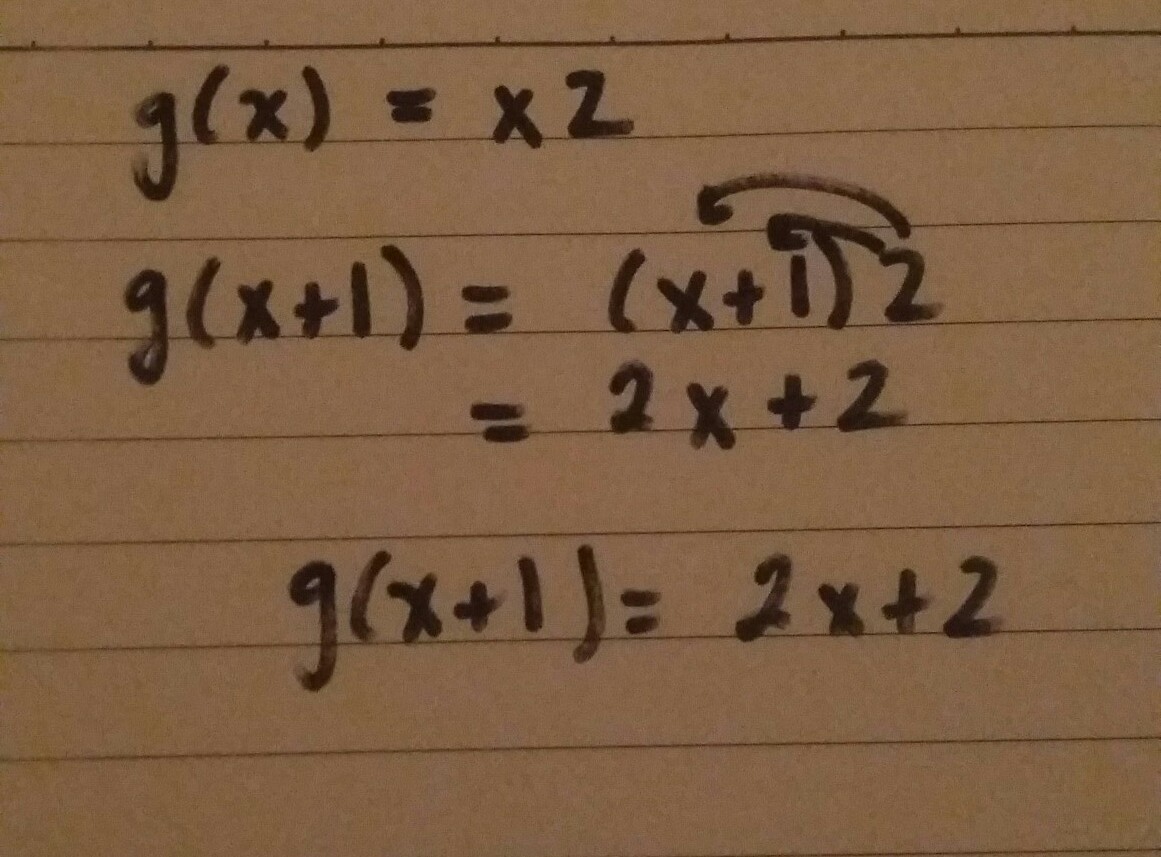 g(x) = x2
g(x+1) = (x+1)2
= 2x+2
g(x+1) = 2x+2